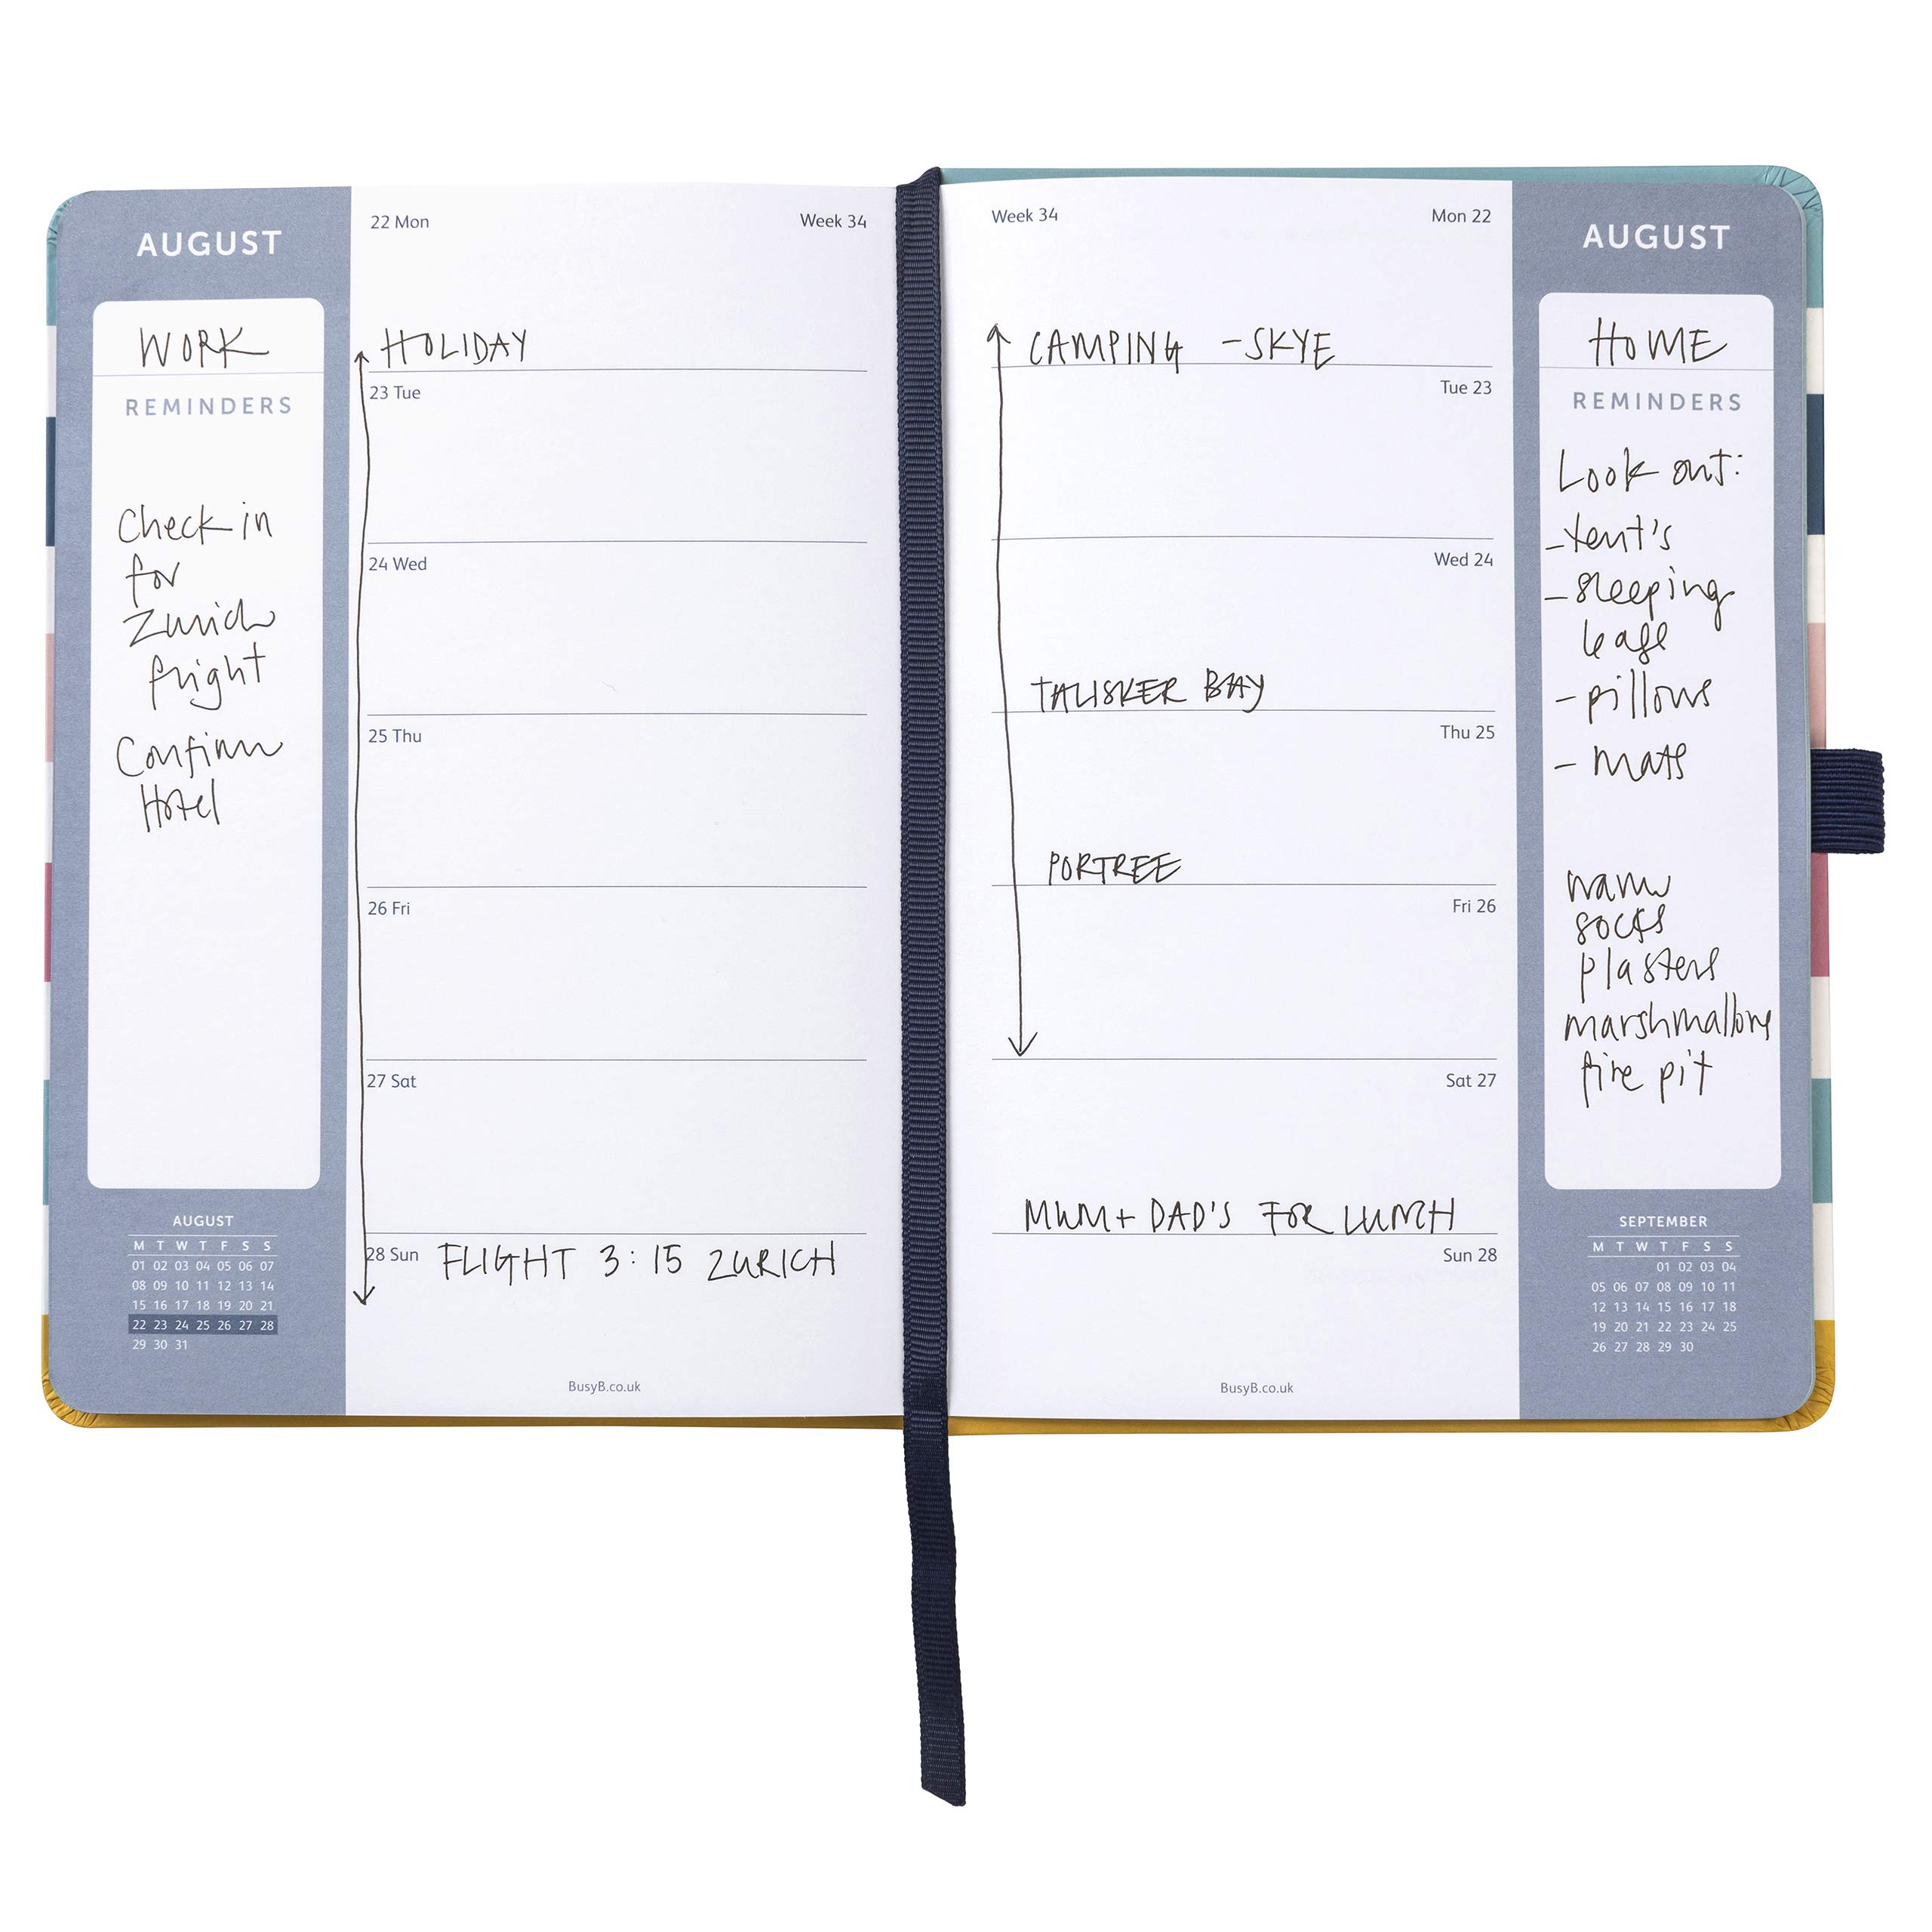 AUGUST
WORK
REMINDERS
Check in
for
Zurich
flight
Confirm
Hotel
AUGUST
M T W T F S S
01 02 03 04 05 06 07
08 09 10 11 12 13 14
15 16 17 18 19 20 21
22 23 24 25 26 27 28
29 30 31
22 Mon Week 34
HOLIDAY
23 Tue
24 Wed
25 Thu
26 Fri
27 Sat
28 Sun FLIGHT 3:15 ZURICH
BusyB.co.uk
Week 34 Mon 22
CAMPING - SKYE
Tue 23
Wed 24
TALISKER BAY
Thu 25
PORTREE
Fri 26
Sat 27
MUM + DAD'S FOR LUNCH
Sun 28
BusyB.co.uk
AUGUST
HOME
REMINDERS
Look out:
- tent's
- sleeping
bags
- pillows
- mats
warm
socks
plasters
marshmallows
fire pit
SEPTEMBER
M T W T F S S
01 02 03 04
05 06 07 08 09 10 11
12 13 14 15 16 17 18
19 20 21 22 23 24 25
26 27 28 29 30